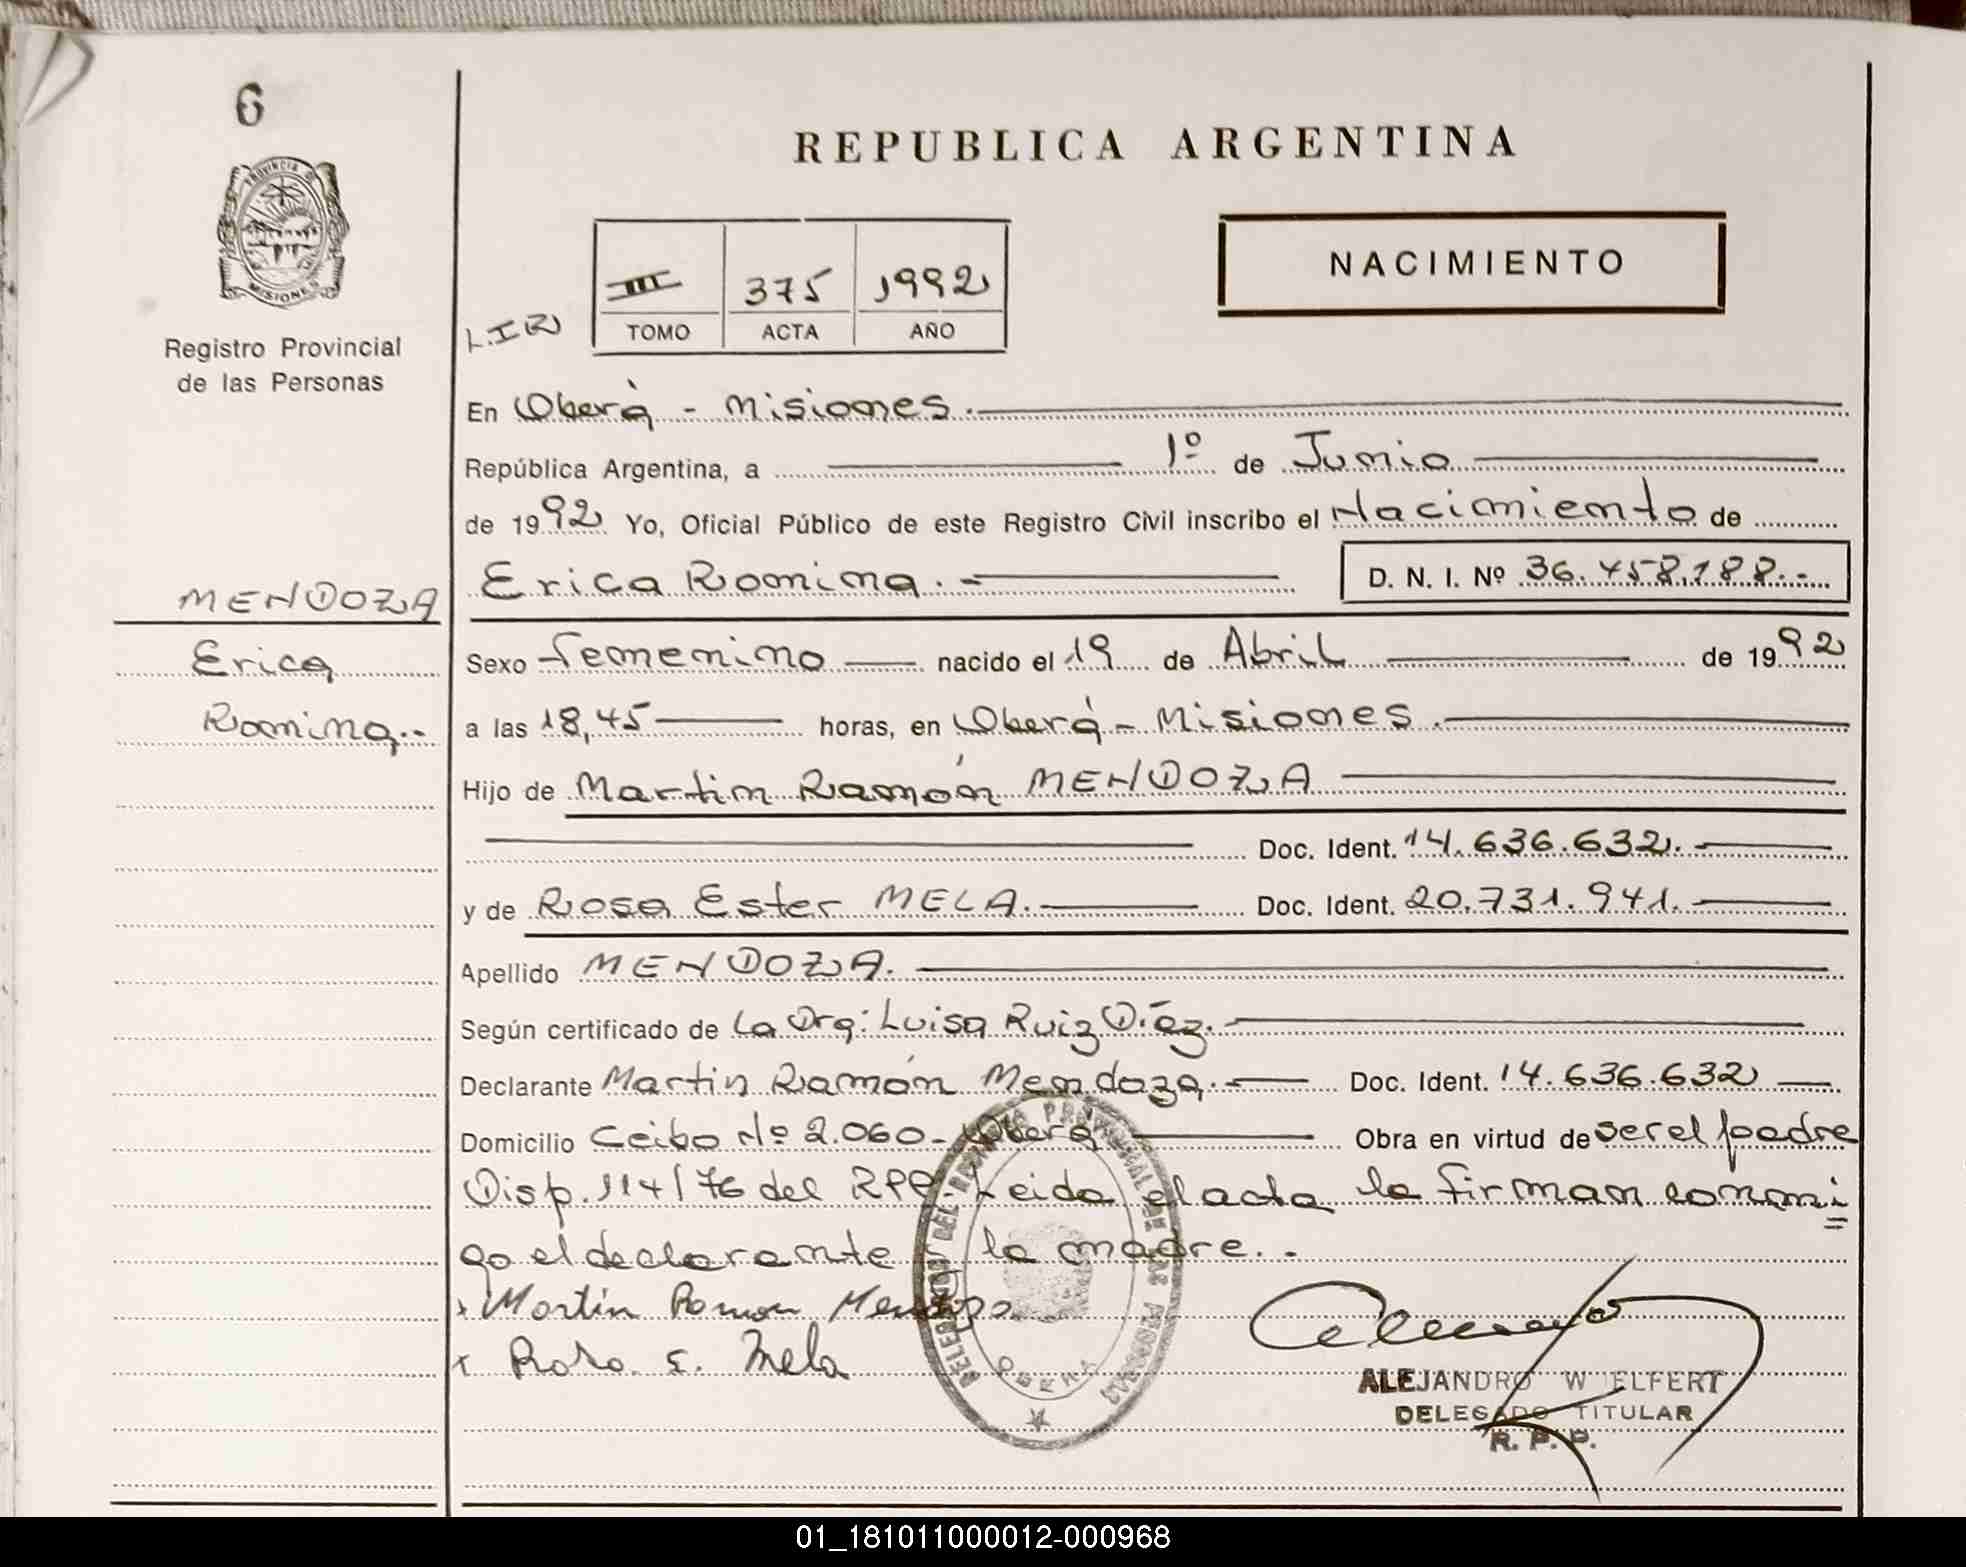 6
PROVINCIA DE
MISIONES
Registro Provincial
de las Personas
REPUBLICA ARGENTINA
NACIMIENTO
III 375 1992
TOMO ACTA AÑO
En Oberá - Misiones.
República Argentina, a 1º de Junio
de 1992 Yo, Oficial Público de este Registro Civil inscribo el Nacimiento de
Erica Romina. - D. N. I. Nº 36.458.188.-
MENDOZA
Erica
Romina.-
Sexo femenino nacido el 19 de Abril de 1992
a las 18,45 horas, en Oberá - Misiones.
Hijo de Martin Ramón MENDOZA
Doc. Ident. 14.636.632.
y de Rosa Ester MELA. Doc. Ident. 20.731.941.
Apellido MENDOZA.
Según certificado de La Drq: Luisa Ruiz Díez.
Declarante Martin Ramón Mendoza. Doc. Ident. 14.636.632
Domicilio Ceibo Nº 2.060- Oberá Obra en virtud de ser el padre
Disp. 114/76 del RPP Leida el acta la firman conmi
go el declarante la madre..
x Martin Ramon Mendoza
x Rosa. E. Mela
OBERA
ALEJANDRO W ELFERT
DELEGADO TITULAR
R. P. P.
01_181011000012-000968